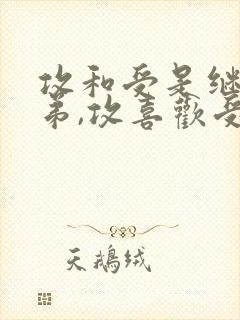 攻和受是继
弟,攻喜歡受
天鵝绒